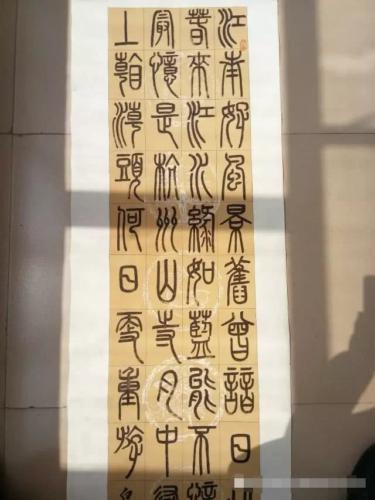 江南好風景舊曾諳日
春來江水綠如藍能不憶
最憶是杭州山寺月中尋
上看潮頭何日更重遊